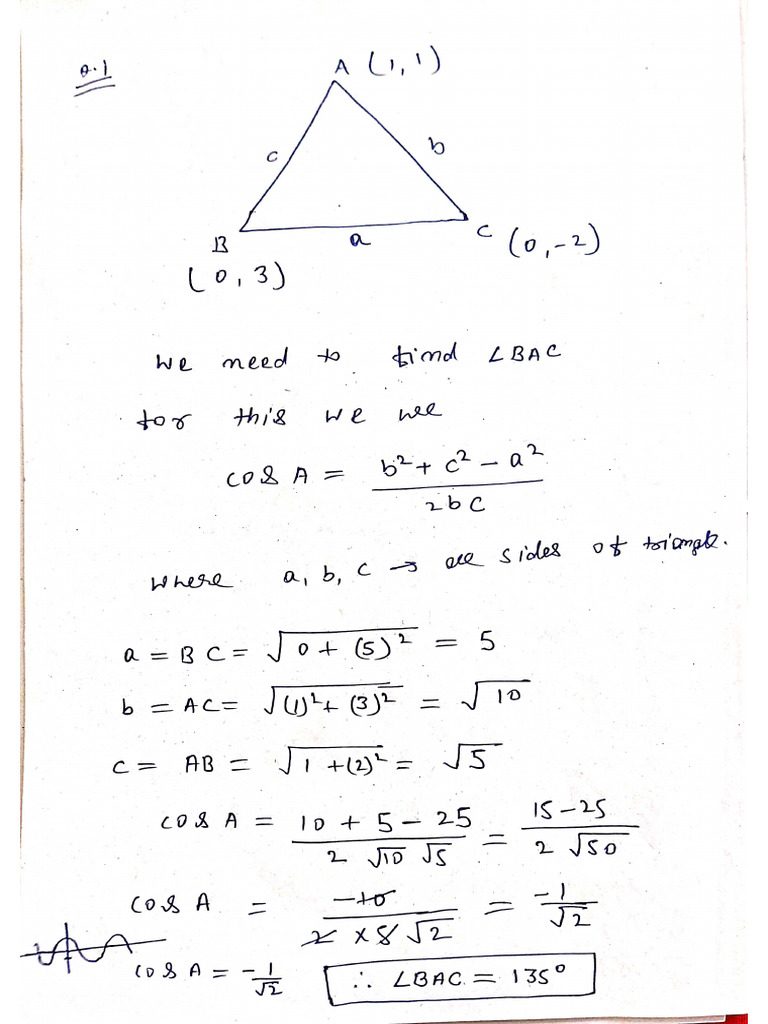 Q.1
A (1, 1)
c
b
B
a
C (0, -2)
(0, 3)
We need to find ∠BAC
for this we use
cos A = (b² + c² - a²) / 2bc
where a, b, c → are sides of triangle.
a = BC = √(0 + (5)²) = 5
b = AC = √((1)² + (3)²) = √10
c = AB = √(1 + (2)²) = √5
cos A = (10 + 5 - 25) / (2 √10 √5) = (15 - 25) / (2 √50)
cos A = -10 / (2 × 5 √2) = -1/√2
cos A = -1/√2 ∴ ∠BAC = 135°